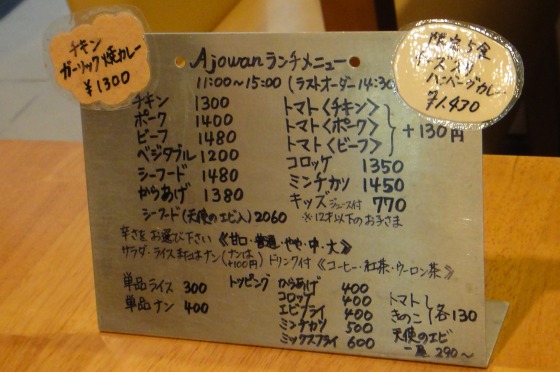 チキン
ガーリック焼カレー
¥1300
限定5食
チーズ入り
ハンバーグカレー
¥1,430
Ajowanランチメニュー
11:00〜15:00(ラストオーダー14:30)
チキン 1300
ポーク 1400
ビーフ 1480
ベジタブル 1200
シーフード 1480
からあげ 1380
シーフード(天使のエビ入) 2060
トマト〈チキン〉
トマト〈ポーク〉
トマト〈ビーフ〉
+130円
コロッケ 1350
ミンチカツ 1450
キッズ ジュース付 770
※12才以下のお子さま
辛さをお選び下さい《甘口・普通・やや・中・大》
サラダ・ライスまたはナン(ナンは+100円)ドリンク付《コーヒー・紅茶・ウーロン茶》
単品ライス 300
単品ナン 400
トッピング からあげ 400
コロッケ 400
エビフライ 400
ミンチカツ 500
ミックスフライ 600
トマト
きのこ
各130
天使のエビ
一尾 290〜